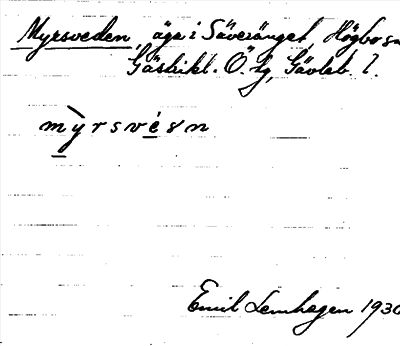 Myrsveden, äga i Säveränget, Högbo sn
Gästrikl. Ö. tg, Gävleb. l.
m y r s v e s n
Emil Lemhagen 1930